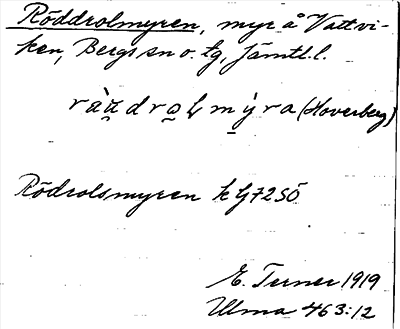 Röddrolmyren, myr å Vattvi-
ken, Bergs sn o. tg, Jämtl.l.
(Hoverberg)
Rödrolsmyren k G72SÖ
E. Turner 1919
Ulma 463:12